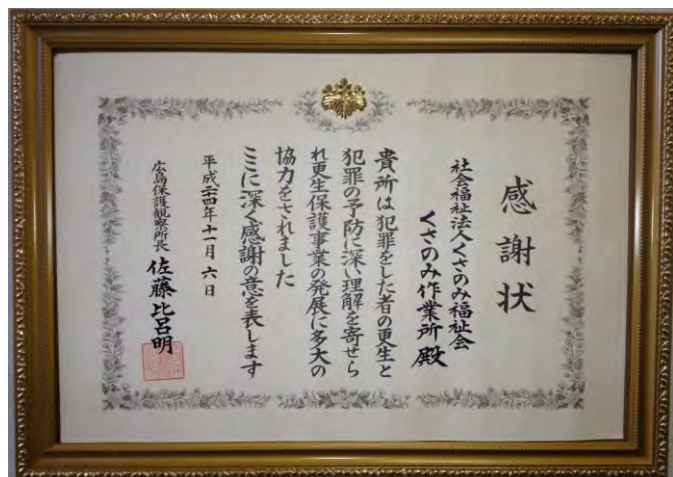 感謝状
社会福祉法人くさのみ福祉会
くさのみ作業所 殿
貴所は犯罪をした者の更生と
犯罪の予防に深い理解を寄せら
れ更生保護事業の発展に多大の
協力をされました
ここに深く感謝の意を表します
平成二十四年十一月六日
広島保護観察所長 佐藤比呂明